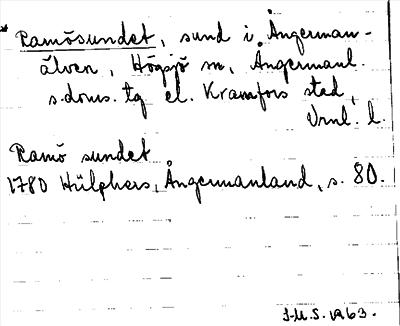 * Ramösundet, sund i Ångerman-
älven, Högsjö sn, Ångermanl.
s.doms. tg el. Kramfors stad,
Vrnl. l.
Ramö sundet
1780 Hülphers, Ångermanland, s. 80.
J.M.S. 1963.